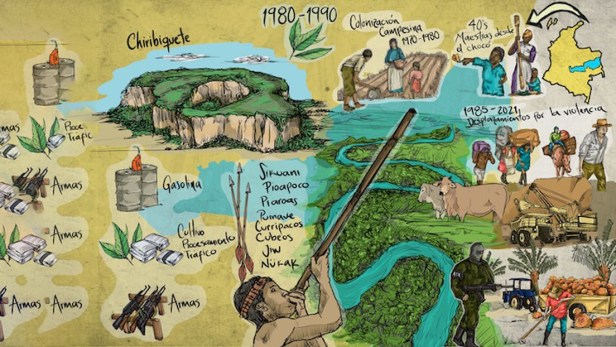 1980-1990
Chiribiquete
Colonización
Campesina
1970-1980
40's
Maestras desde
el chocó
1985-2021:
Desplazamientos por la violencia
Armas
Proce-
Trafic
Armas
Gasolina
Armas
Cultivo
Procesamiento
Trafico
Armas
Armas
Armas
Sikuani
Piapoco
Piaroas
Puinave
Curripacos
Cubeos
Jiw
Nükak